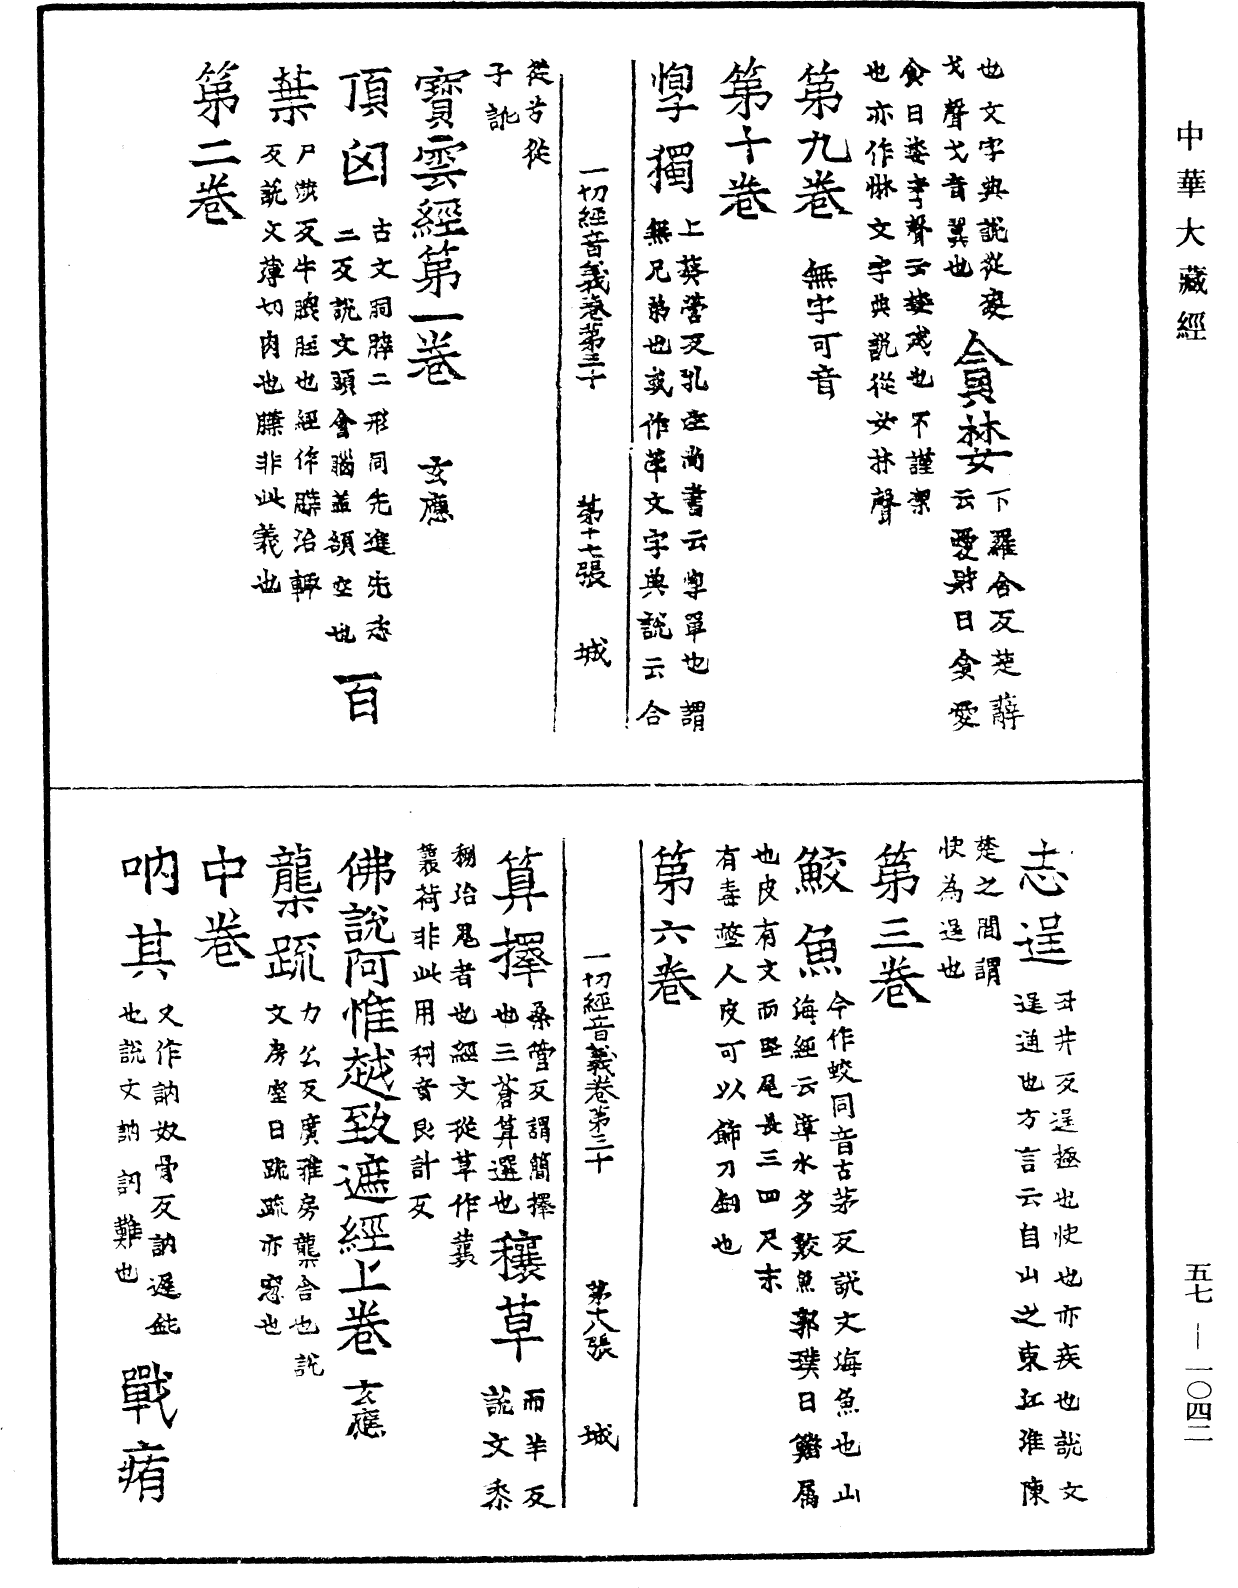 中華大藏經
也文字典説從妄
弋聲弋音翼也
貪婪
下羅含反楚辭
云愛財曰貪愛
食曰婪字書聲云婪殘也不謹潔
也亦作惏文字典説從女林聲
第九卷
無字可音
第十卷
惸獨
上葵營反孔注尚書云惸單也謂
無兄弟也或作㷀文字典説云合
一切經音義卷第三十
第十七張
城
從苦從
子訛
寶雲經第一卷
玄應
頂囟
古文𦞤脺二形同先進先恣
二反説文頭會腦蓋頟空也
百
葉
尸涉反牛膍胵也經作䐑治輒
反説文薄切肉也䐑非此義也
第二卷
志逞
丑井反逞極也快也亦疾也説文
逞通也方言云自山之東江淮陳
楚之間謂
快為逞也
第三卷
鮫魚
今作蛟同音古茅反説文海魚也山
海經云漳水多鮫魚郭璞曰䱜屬
也皮有文而堅尾長三四尺末
有毒螫人皮可以飾刀劒也
第六卷
一切經音義卷第三十
第十八張
城
算擇
桑管反謂簡擇
也三蒼算選也
穰草
而羊反
説文黍
𥝩治竟者也經文從草作蘘
蘘荷非此用𥝩音良計反
佛說阿惟越致遮經上卷
玄應
櫳疏
力公反廣雅房櫳舍也説
文房室曰疏疏亦窓也
中卷
吶其
又作訥奴骨反訥遲鈍
也説文訥訶難也
戰痏
五七—一〇四二